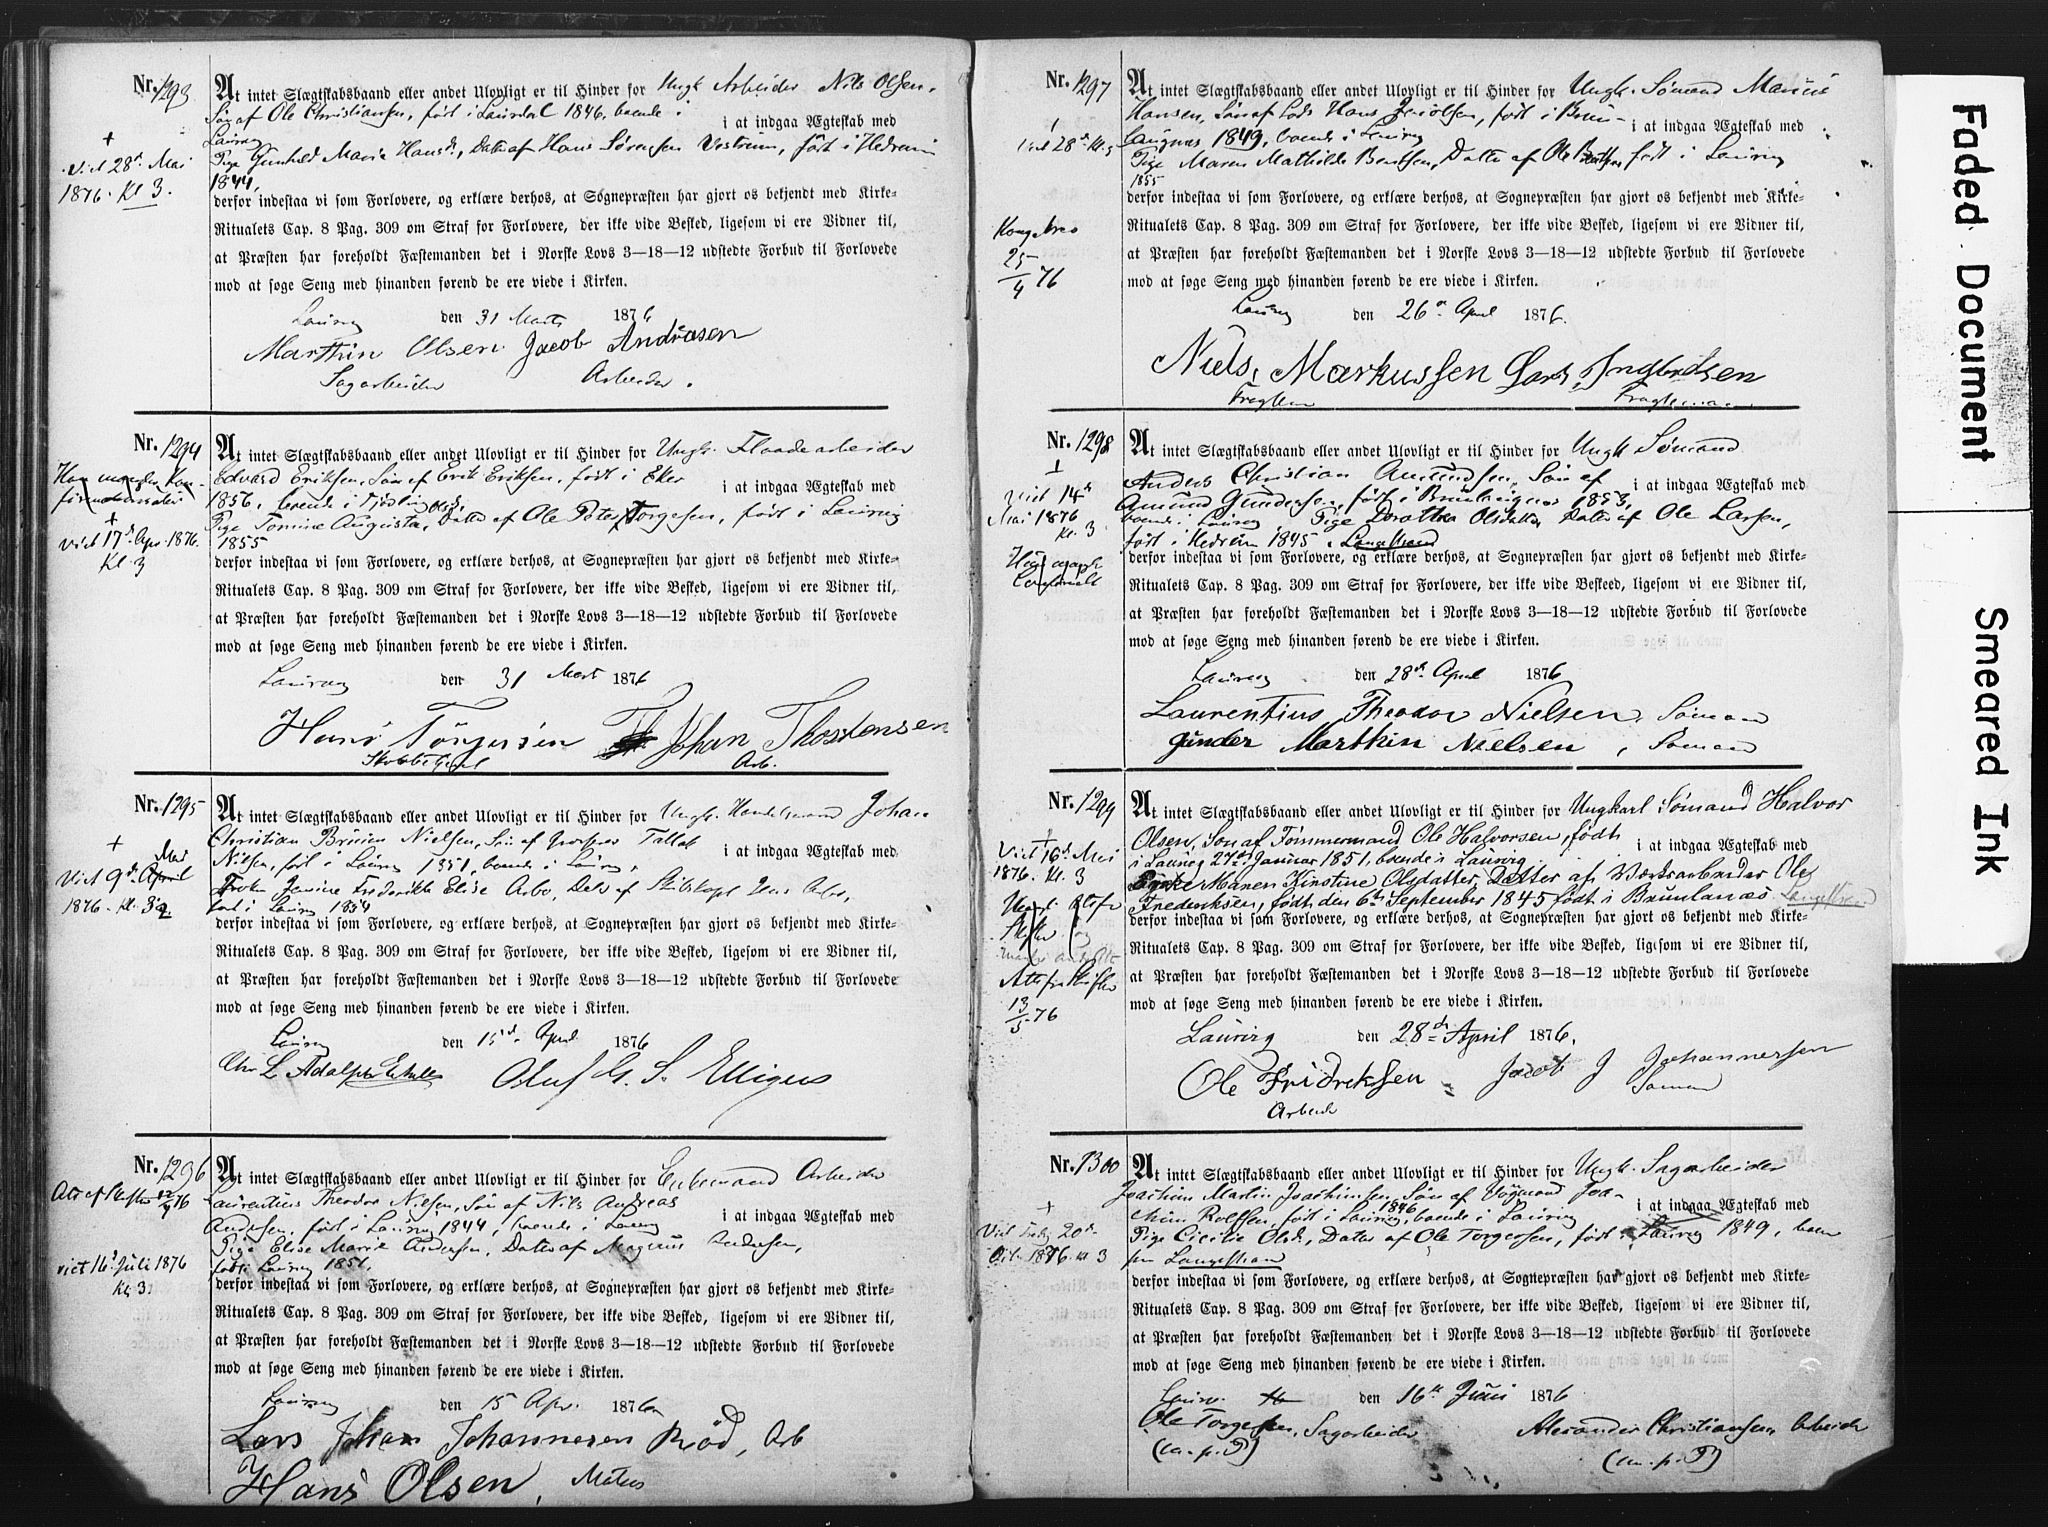 Nr. 1293
At intet Slægtskabsbaand eller andet Ulovligt er til Hinder for Ungk. Arbeider Nils Olsen,
Søn af Ole Christiansen, født i Laurdal 1846, boende i
i at indgaa Ægteskab med
Laurvig
Pige Gunhild Marie Hansd., Datter af Hans Sørensen Vestrum, født i Hedrum
1844,
derfor indestaa vi som Forlovere, og erklære derhos, at Sognepræsten har gjort os bekjendt med Kirke-
Ritualets Cap. 8 Pag. 309 om Straf for Forlovere, der ikke vide Besked, ligesom vi ere Vidner til,
at Præsten har foreholdt Fæstemanden det i Norske Lovs 3—18—12 udstedte Forbud til Forlovede
mod at søge Seng med hinanden førend de ere viede i Kirken.
Laurvig den 31 Marts 1876
Marthin Olsen Jacob Andreasen
Sagarbeider Arbeider.
+
Viet 28de Mai
1876. Kl 3.
Nr. 1294
At intet Slægtskabsbaand eller andet Ulovligt er til Hinder for Ungk. Flaadearbeider
Edvard Eriksen, Søn af Erik Eriksen, født i Eker
i at indgaa Ægteskab med
1856, boende i Tjølling
Pige Tomine Augusta Olsd., Datter af Ole Peter Torgersen, født i Laurvig
1855
derfor indestaa vi som Forlovere, og erklære derhos, at Sognepræsten har gjort os bekjendt med Kirke-
Ritualets Cap. 8 Pag. 309 om Straf for Forlovere, der ikke vide Besked, ligesom vi ere Vidner til,
at Præsten har foreholdt Fæstemanden det i Norske Lovs 3—18—12 udstedte Forbud til Forlovede
mod at søge Seng med hinanden førend de ere viede i Kirken.
Laurvig den 31 Mars 1876
Hans Törgersen Johan Thostensen
Arb.
Han mangler Kon-
firmationsattest
+
viet 17de Apr. 1876.
Kl. 3
Nr. 1295
At intet Slægtskabsbaand eller andet Ulovligt er til Hinder for Ungk. Handelsmand Johan
Christian Bruun Nielsen, Søn af
Nilsen, født i Laurvig 1851, boende i Laurvig,
i at indgaa Ægteskab med
Frøken Janine Frederikke Elise Arbo, Datter af Skibskapt. Arbo,
født i Laurvig 1854
derfor indestaa vi som Forlovere, og erklære derhos, at Sognepræsten har gjort os bekjendt med Kirke-
Ritualets Cap. 8 Pag. 309 om Straf for Forlovere, der ikke vide Besked, ligesom vi ere Vidner til,
at Præsten har foreholdt Fæstemanden det i Norske Lovs 3—18—12 udstedte Forbud til Forlovede
mod at søge Seng med hinanden førend de ere viede i Kirken.
Laurvig den 15de April 1876
Chr L Adolph Oluf G. S. Elligers
+
Mai
Viet 9de April
1876. Kl. 3
Nr. 1296
At intet Slægtskabsbaand eller andet Ulovligt er til Hinder for Enkemand Arbeider
Laurentius Theodor Nilsen, Søn af Nils Andreas
i at indgaa Ægteskab med
Andersen, født i Laurvig 1844, boende i Laurvig
Pige Elise Marie Andersen, Datter af Magnus Andersen,
født i Laurvig 1851,
derfor indestaa vi som Forlovere, og erklære derhos, at Sognepræsten har gjort os bekjendt med Kirke-
Ritualets Cap. 8 Pag. 309 om Straf for Forlovere, der ikke vide Besked, ligesom vi ere Vidner til,
at Præsten har foreholdt Fæstemanden det i Norske Lovs 3—18—12 udstedte Forbud til Forlovede
mod at søge Seng med hinanden førend de ere viede i Kirken.
Laurvig den 15 Apr. 1876
Lars Johan Johannesen Röd, Arb
Hans Olsen,
viet 16de Juli 1876
Kl. 3.
Nr. 1297
At intet Slægtskabsbaand eller andet Ulovligt er til Hinder for Ungk. Sømand Marius
Hansen, Søn af Lods Hans Jacobsen, født i Brun-
i at indgaa Ægteskab med
laugnæs 1849, boende i Laurvig
Pige Maren Mathilde Bentsen, Datter af Ole Bentsen født i Laurvig
1855
derfor indestaa vi som Forlovere, og erklære derhos, at Sognepræsten har gjort os bekjendt med Kirke-
Ritualets Cap. 8 Pag. 309 om Straf for Forlovere, der ikke vide Besked, ligesom vi ere Vidner til,
at Præsten har foreholdt Fæstemanden det i Norske Lovs 3—18—12 udstedte Forbud til Forlovede
mod at søge Seng med hinanden førend de ere viede i Kirken.
Laurvig den 26de April 1876.
Niels Markussen Lars Ingbretsen
Fragtemand
viet 28de Kl. 3
25/4 76
Nr. 1298
At intet Slægtskabsbaand eller andet Ulovligt er til Hinder for Ungk Sømand
Anders Christian Amundsen, Søn af
i at indgaa Ægteskab med
Amund Gundersen, født i Brunlaugnæs 1853,
boende i Laurvig, Pige Dorothea Olsdatter Datter af Ole Larsen,
født i Hedrum 1845, Langestrand
derfor indestaa vi som Forlovere, og erklære derhos, at Sognepræsten har gjort os bekjendt med Kirke-
Ritualets Cap. 8 Pag. 309 om Straf for Forlovere, der ikke vide Beskeed, ligesom vi ere Vidner til,
at Præsten har foreholdt Fæstemanden det i Norske Lovs 3—18—12 udstedte Forbud til Forlovede
mod at søge Seng med hinanden førend de ere viede i Kirken.
Laurvig den 28de April 1876
Laurentius Theodor Nielsen, Sømand
Gunder Marthin Nielsen, Sømand
Viet 14de
Mai 1876
Kl. 3
Nr. 1299
At intet Slægtskabsbaand eller andet Ulovligt er til Hinder for Ungkarl Sømand Halvor
Olsen, Søn af Tømmermand Ole Halvorsen, født
i at indgaa Ægteskab med
i Laurvig 27de Januar 1851, boende i Laurvig
Maren Kirstine Olsdatter, Datter af Værksarbeider Ole
Frederiksen, født den 6te September 1845 født i Brunlanæs Langestrand
derfor indestaa vi som Forlovere, og erklære derhos, at Sognepræsten har gjort os bekjendt med Kirke-
Ritualets Cap. 8 Pag. 309 om Straf for Forlovere, der ikke vide Besked, ligesom vi ere Vidner til,
at Præsten har foreholdt Fæstemanden det i Norske Lovs 3—18—12 udstedte Forbud til Forlovede
mod at søge Seng med hinanden førend de ere viede i Kirken.
Laurvig den 28de April 1876.
Ole Fridreksen Jacob J Johannessen
Arbeider Sømand
+
Viet 16de Mai
1876. Kl. 3
13/5 76
Nr. 1300
At intet Slægtskabsbaand eller andet Ulovligt er til Hinder for Ungk. Sagarbeider
Joachim Martin Joachimsen, Søn af Vognmand Joa-
i at indgaa Ægteskab med
chim Rolfsen, født i Laurvig 1846, boende i Laurvig
Pige Cicilie Olsd., Datter af Ole Torgersen, født i Laurvig 1849, boen
paa Langestrand
derfor indestaa vi som Forlovere, og erklære derhos, at Sognepræsten har gjort os bekjendt med Kirke-
Ritualets Cap. 8 Pag. 309 om Straf for Forlovere, der ikke vide Besked, ligesom vi ere Vidner til,
at Præsten har foreholdt Fæstemanden det i Norske Lovs 3—18—12 udstedte Forbud til Forlovede
mod at søge Seng med hinanden førend de ere viede i Kirken.
Laurv. den 16de Juni 1876
Ole Torgersen, Sagarbeider Alexander Christiansen, Arbeider
(m. p. P) (m. p. P)
+
Viet Fredag 20de
Okt. 1876. Kl 3
Faded Document
Smeared Ink